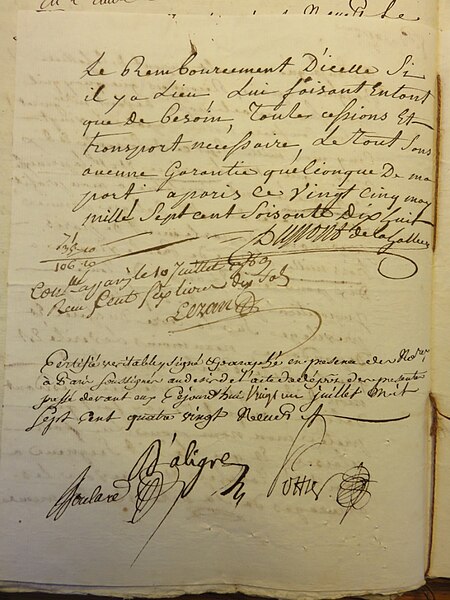 Le Remboursement D'icelle Si
il y a Lieu, Lui faisant Entant
que de besoin, Toutes cessions Et
transport necessaire, Le Tout Sans
aucune Garantie quelconque De ma
part, a paris ce Vingt Cinq may
mille Sept cent Soixante Dix huit
Dupont de la
106 10
a paris le 10 Juillet
Recu Cent Sept livres dix Sols
Lezan
Certifié veritable, signé & paraphé en presence des No.res
à Paris soussignés au desir de l'acte de depôt des presentes
passé devant eux Cejourd'hui Vingt un Juillet Mil
Sept Cent quatre Vingt Neuf
D'aligre